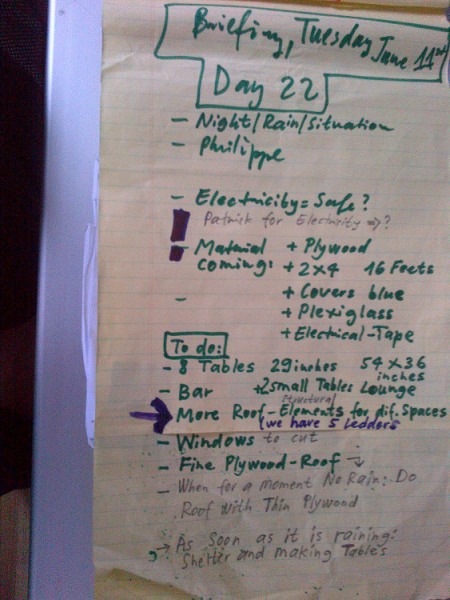 Briefing, Tuesday June 11th
Day 22
- Night/Rain/Situation
- Philippe
- Electricity = Safe?
Patrick for Electricity => ?
! - Material coming: + Plywood
+ 2x4 16 Feets
- + Covers blue
+ Plexiglass
+ Electrical-Tape
To do:
- 8 Tables 29 inches 54 x 36 inches
- Bar + 2 small Tables Lounge
structural
→ More Roof-Elements for dif. Spaces
(we have 5 Ledders
- Windows to cut
- Fine Plywood-Roof ↓
- When for a moment No Rain: Do
Roof with Thin Plywood
→ As Soon as it is raining:
Shelter and making Tables